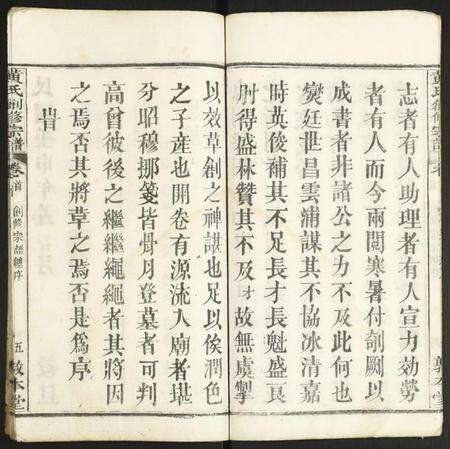 志者有人助理者有人宣力効勞
者有人而今兩閱寒暑付剞劂以
成書者非諸公之力不及此何也
奬廷世昌雲浦謀其不協冰清嘉
時英俊補其不足長才長魁盛良
肘得盛林贊其不及才故無虞掣
以效草創之神諶也足以俟潤色
之子産也開卷有源流入廟者堪
分昭穆挪箋皆骨月登墓者可判
高曾彼後之繼繼繩繩者其將因
之焉否其將草之焉否是為序
旹
黄氏創修宗譜
卷首
創修宗譜總序
五
敦本堂